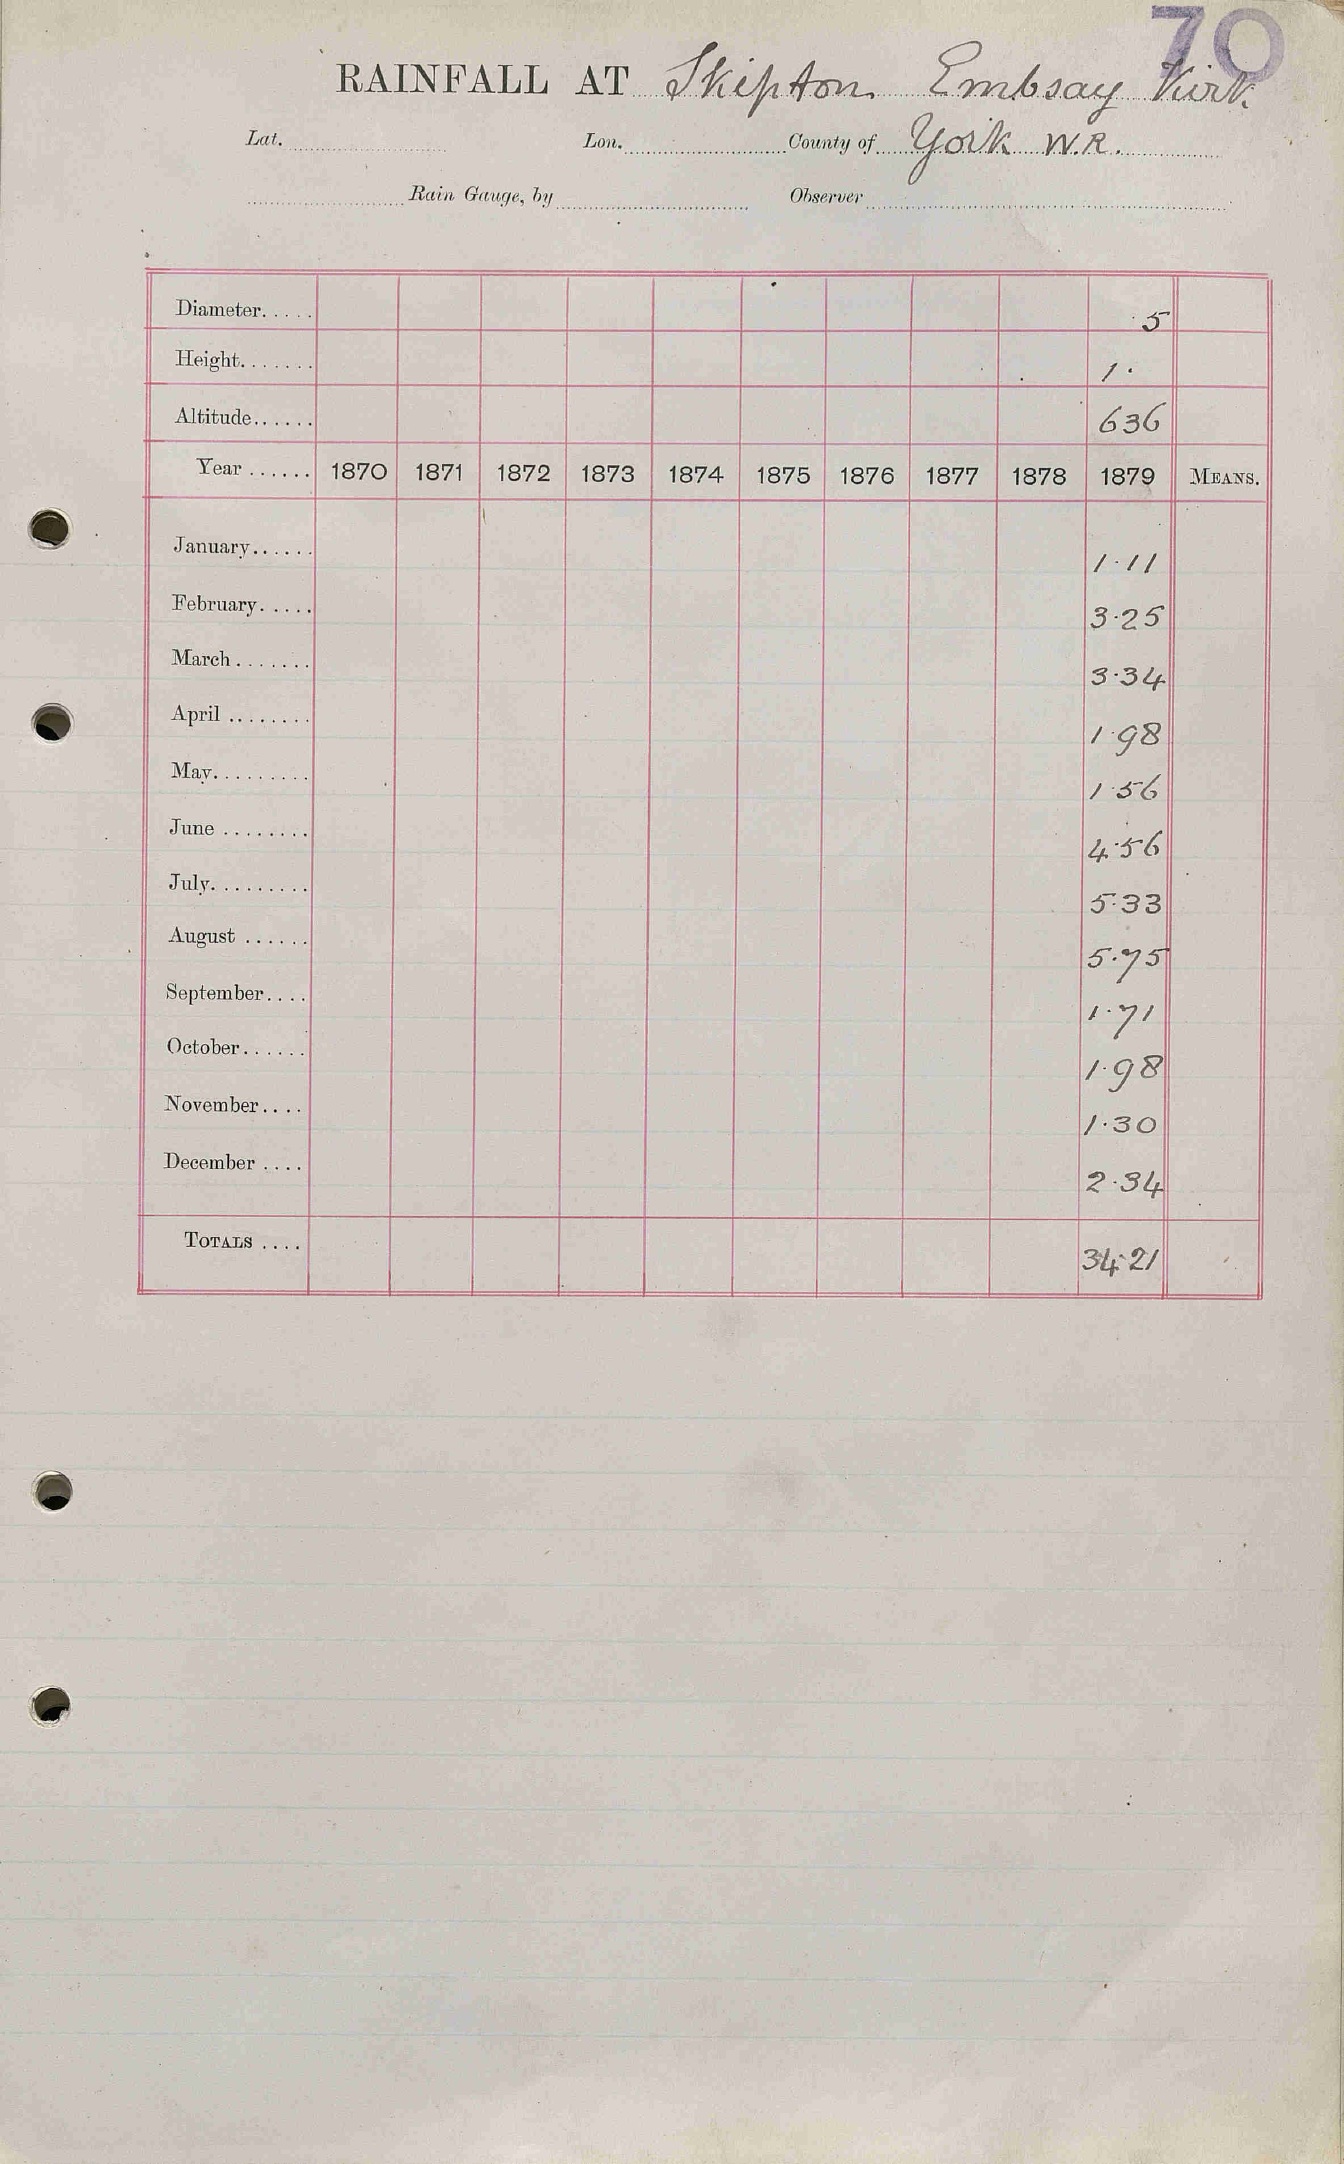 70
RAINFALL AT Skipton Embsay Kirk
Lat. Lon. County of York W.R.
Rain Gauge, by Observer
Diameter..... 5
Height....... 1.
Altitude...... 636
Year ...... 1870 1871 1872 1873 1874 1875 1876 1877 1878 1879 MEANS.
January...... 1.11
February..... 3.25
March ....... 3.34
April ........ 1.98
May......... 1.56
June ........ 4.56
July......... 5.33
August ...... 5.75
September.... 1.71
October...... 1.98
November.... 1.30
December .... 2.34
TOTALS .... 34.21